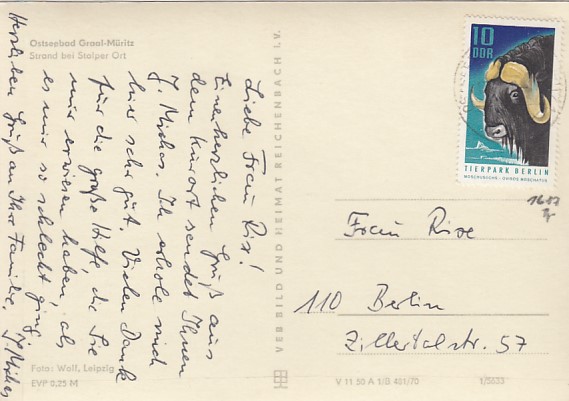 Ostseebad Graal-Müritz
Strand bei Stolper Ort
Liebe Frau Rix!
Einen herzlichen Gruß aus
dem Kurort sendet Ihnen
J. Micher. Ich erhole mich
hier sehr gut. Vielen Dank
für die große Hilfe, die Sie
mir erwiesen haben, als
es mir so schlecht ging.
Herzlichen Gruß an Ihre Familie. J. Micher
Foto: Wolf, Leipzig
EVP 0,25 M
VEB BILD UND HEIMAT REICHENBACH I. V.
10
DDR
TIERPARK BERLIN
MOSCHUSOCHS · OVIBOS MOSCHATUS
1687
Frau Rixe
110 Berlin
Zillertalstr. 57
V 11 50 A 1/B 481/70
1/5633